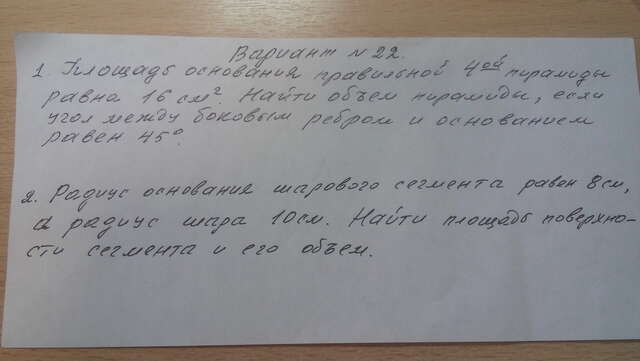 Вариант №22.
1. Площадь основания правильной 4ой пирамиды
равна 16 см². Найти объем пирамиды, если
угол между боковым ребром и основанием
равен 45°.
2. Радиус основания шарового сегмента равен 8 см,
а радиус шара 10 см. Найти площадь поверхно-
сти сегмента и его объем.